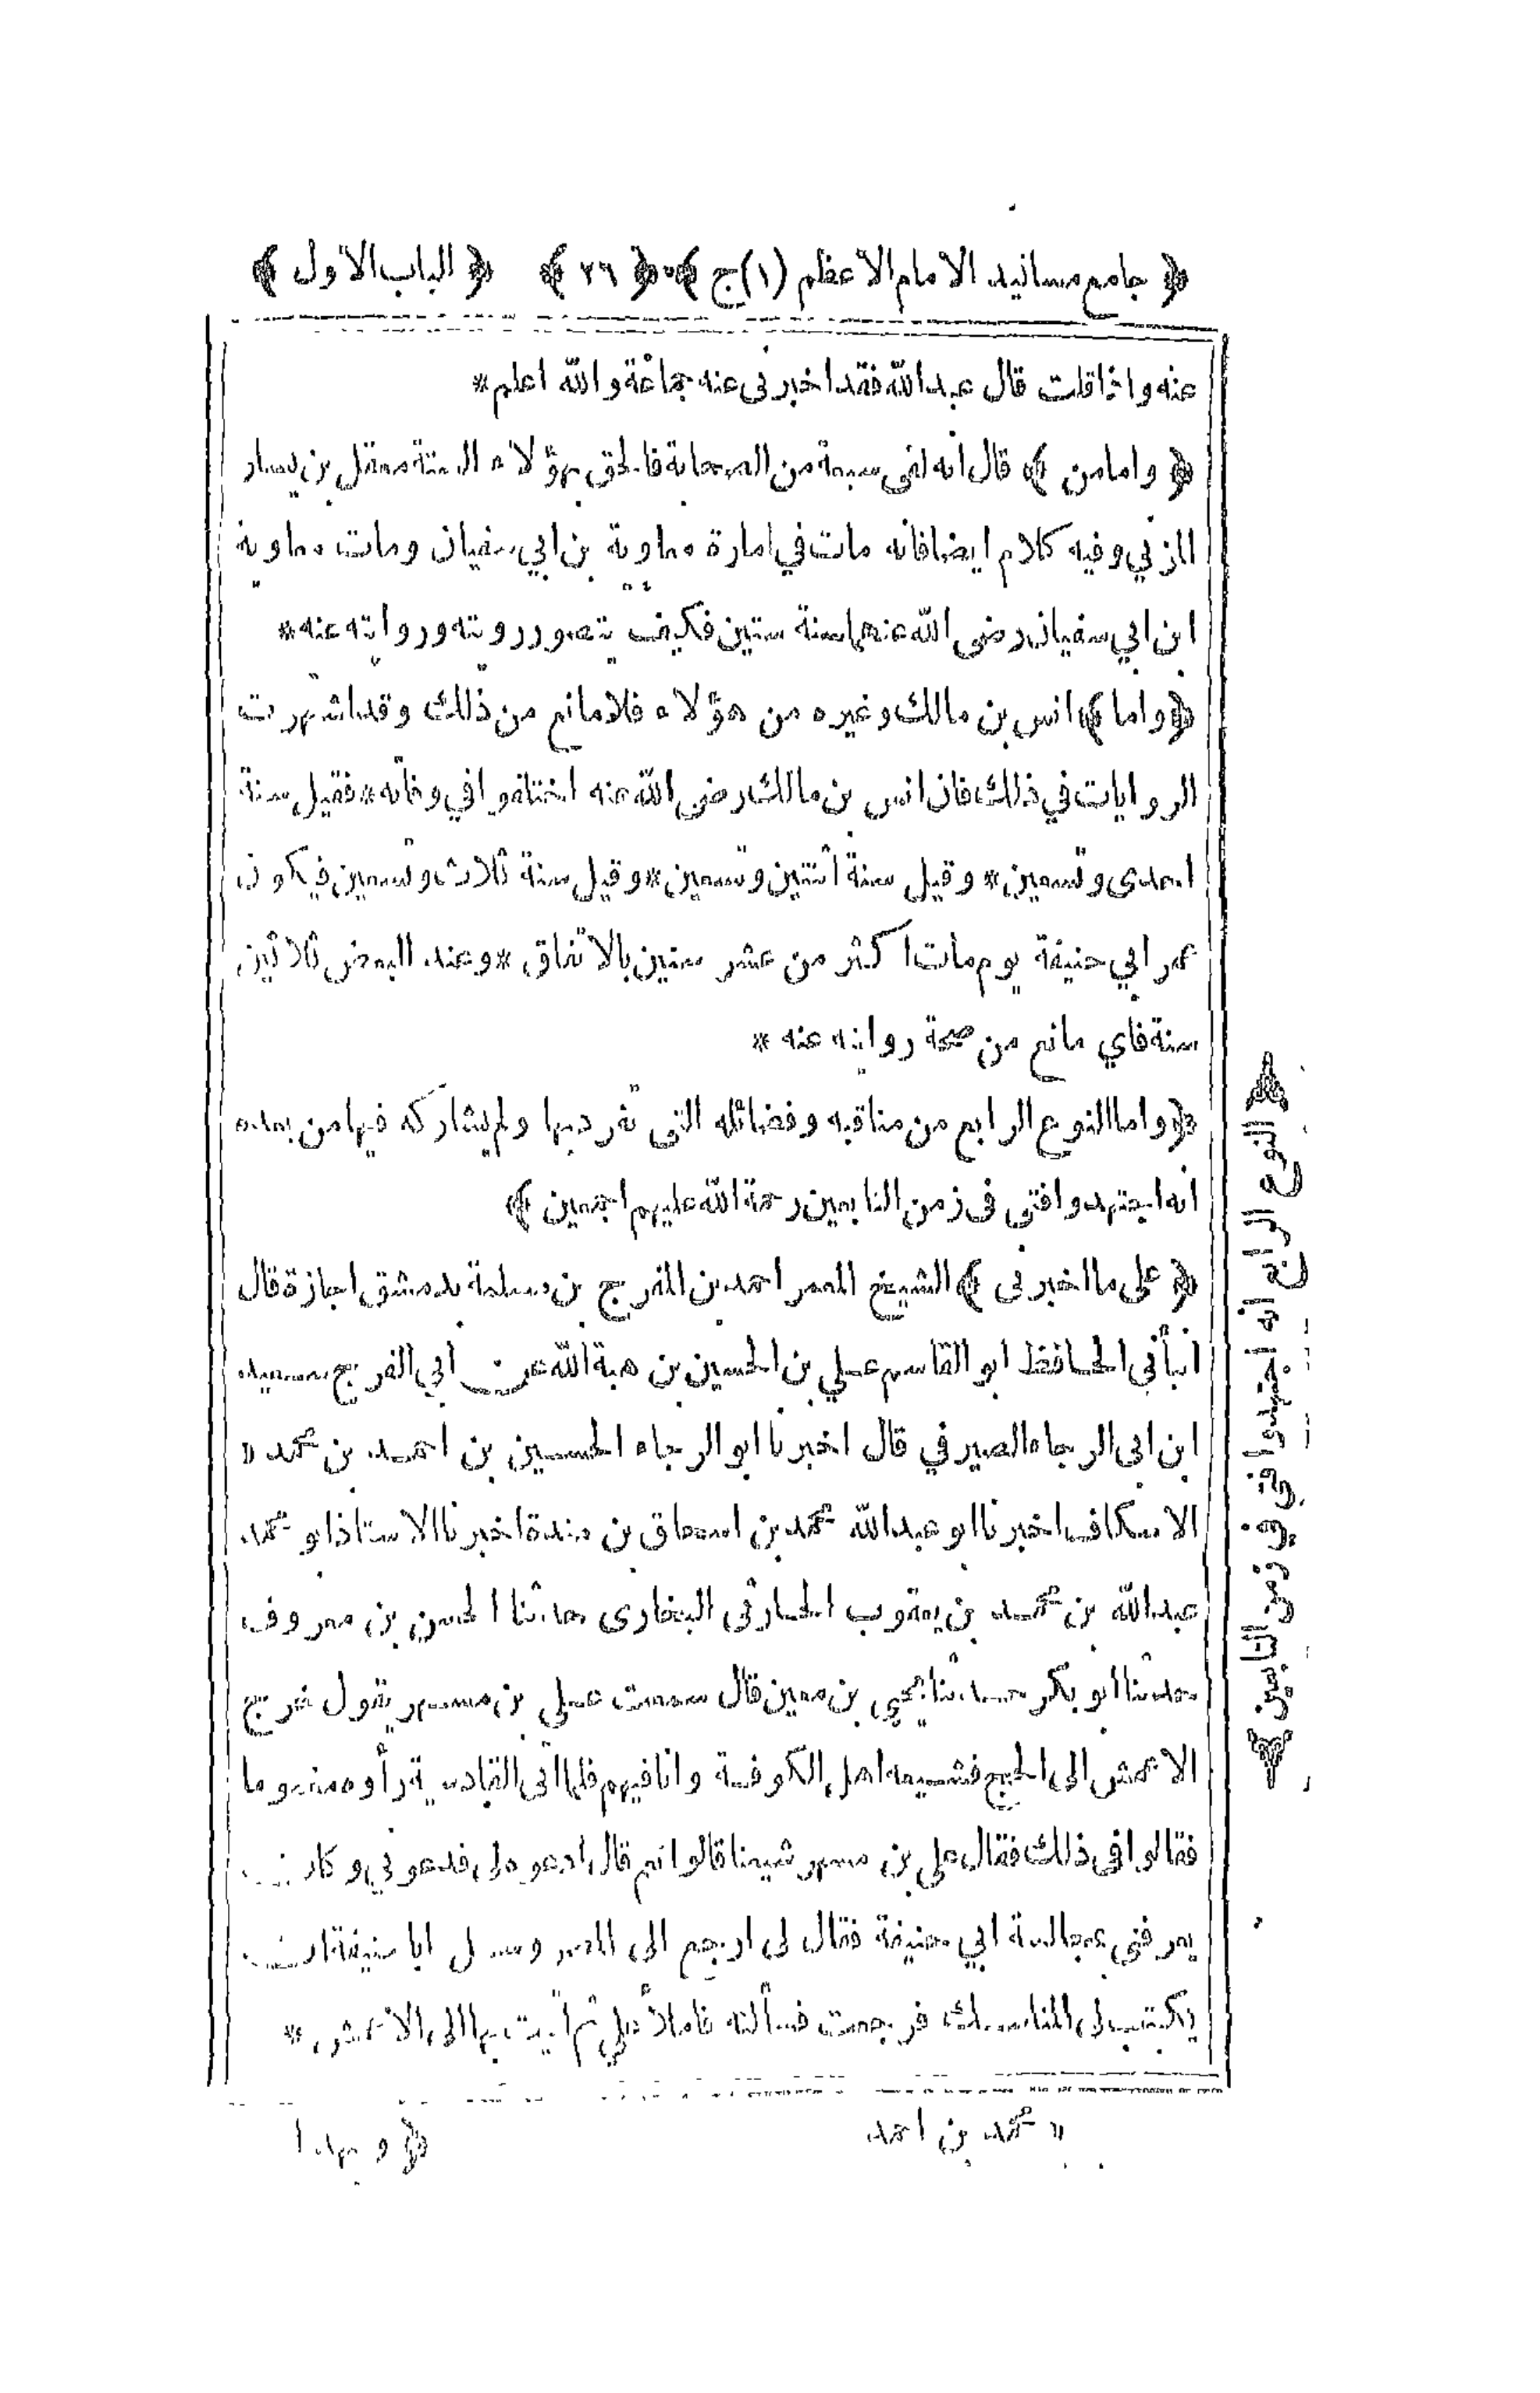 ﴿ جامع مسانيد الامام الأعظم (١) ج ﴾ ﴿ ٢٦ ﴾ ﴿ الباب الاول ﴾
عنه واذا قلت قال عبدالله فقد اخبر نى عنه جماعة والله اعلم *
﴿ واما من ﴾ قال انه لقى سبعة من الصحابة فالحق بهؤلاء الستة معقل بن يسار
المزني وفيه كلام ايضا فانه مات في امارة معاوية بن ابي سفيان ومات معاوية
ابن ابي سفيان رضى الله عنهما سنة ستين فكيف يتصور رويته وروايته عنه *
﴿ واما ﴾ انس بن مالك وغيره من هؤلاء فلا مانع من ذلك وقد اشتهرت
الروايات في ذلك فان انس بن مالك رضى الله عنه اختلفوا في وفاته * فقيل سنة
احدى وتسعين * وقيل سنة اثنتين وتسعين * وقيل سنة ثلاث وتسعين فيكون
عمر ابي حنيفة يوم مات اكثر من عشر سنين بالاتفاق * وعند البعض ثلاثين
سنة فاي مانع من صحة روايته عنه *
﴿ واما النوع الرابع من مناقبه وفضائله التى تفرد بها ولم يشاركه فيها من بعده
انه اجتهد وافتى فى زمن التابعين رحمة الله عليهم اجمعين ﴾
﴿ على ما اخبر نى ﴾ الشيخ المعمر احمد بن المفرج بن مسلمة بدمشق اجازة قال
انبأني الحافظ ابو القاسم علي بن الحسين بن هبة الله عن ابي الفرج سعيد
ابن ابى الرجاء الصيرفي قال اخبرنا ابو الرجاء الحسين بن احمد بن محمد «
الاسكاف اخبرنا ابو عبدالله محمد بن اسحاق بن مندة اخبرنا الاستاذ ابو محمد
عبدالله بن محمد بن يعقوب الحارثى البخارى حدثنا الحسن بن معروف
حدثنا ابو بكر حدثنا يحيى بن معين قال سمعت علي بن مسهر يقول خرج
الاعمش الى الحج فشيعه اهل الكوفة وانا فيهم فلما اتى القادسية رأوه مغموما
فقالوا فى ذلك فقال على بن مسهر شيعنا قالوا نعم قال ادعوه لى فدعوني وكان
يعرفنى بمجالسة ابي حنيفة فقال لى ارجع الى المصر وسل ابا حنيفة ان
يكتب لى المناسك فرجعت فسألته فاملأ علي ثم اتيت بها الى الاعمش *
« محمد بن احمد
﴿ وبهذا
﴿ النوع الرابع انه اجتهد وافتى في زمن التابعين ﴾